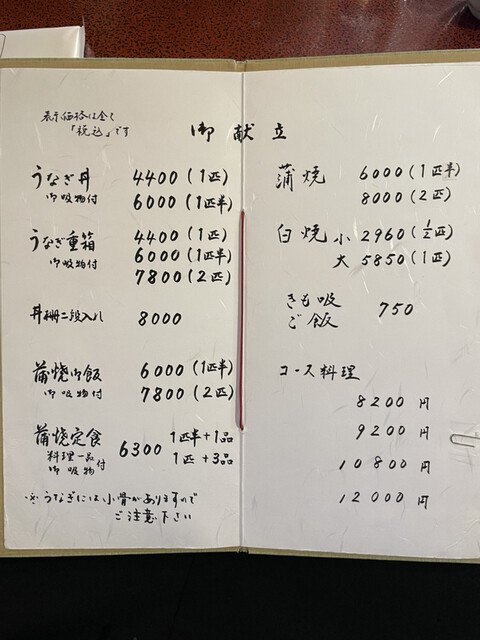 表示価格は全て
「税込」です
御献立
うなぎ丼 4400(1匹)
御吸物付 6000(1匹半)
うなぎ重箱 4400(1匹)
御吸物付 6000(1匹半)
7800(2匹)
丼 二段入れ 8000
蒲焼御飯 6000(1匹半)
御吸物付 7800(2匹)
蒲焼定食 6300 1匹半+1品
料理一品 1匹+3品
御吸物付
※うなぎには小骨がありますので
ご注意下さい
蒲焼 6000(1匹半)
8000(2匹)
白焼 小 2960(1/2匹)
大 5850(1匹)
きも吸 750
ご飯
コース料理
8200円
9200円
10800円
12000円